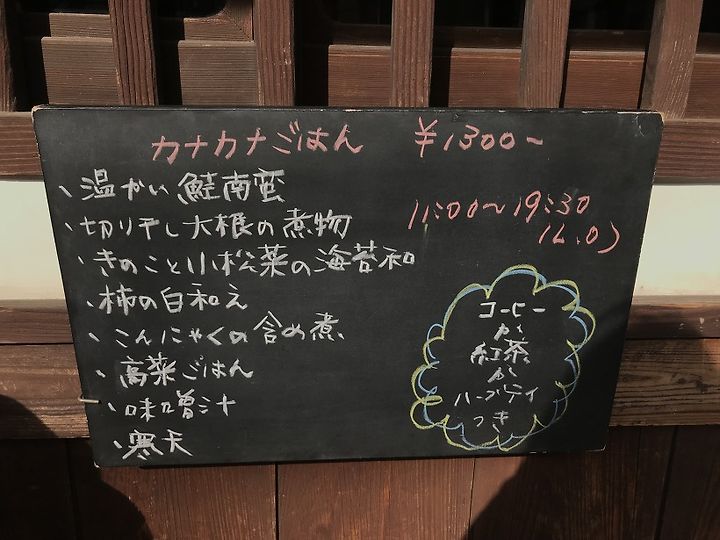 カナカナごはん ¥1300~
、温かい鮭南蛮
、切り干し大根の煮物
、きのこと小松菜の海苔和
、柿の白和え
、こんにゃくの含め煮
、高菜ごはん
、味噌汁
、寒天
11:00~19:30
(L.O)
コーヒー
か
紅茶
か
ハーブティ
つき